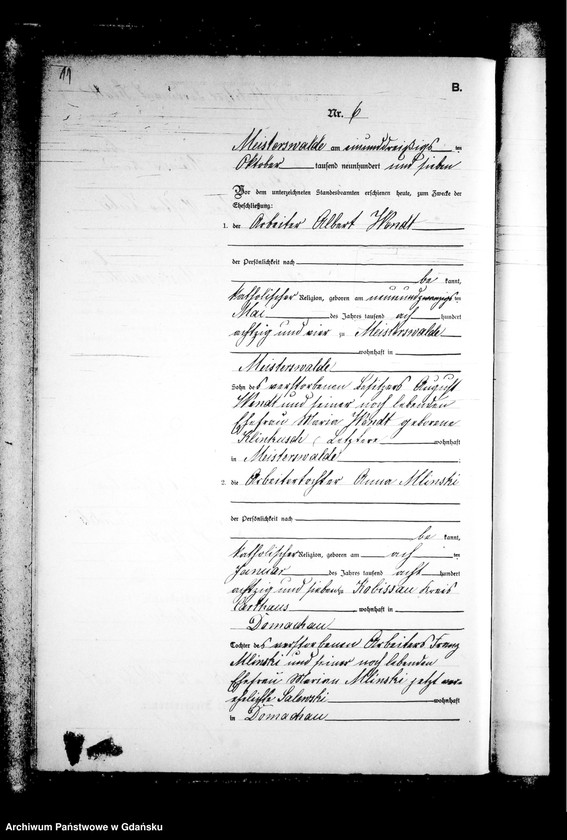 11
B.
Nr. 6
Meisterswalde am einunddreißigs ten
Oktober tausend neunhundert und sieben
Vor dem unterzeichneten Standesbeamten erschienen heute, zum Zwecke der
Eheschließung:
1. der Arbeiter Albert Wendt
der Persönlichkeit nach
be kannt,
katholischer Religion, geboren am neunundzwanzigs ten
Mai des Jahres tausend acht hundert
achtzig und vier zu Meisterswalde
wohnhaft in
Meisterswalde
Sohn des verstorbenen Besitzers August
Wendt und seiner noch lebenden
Ehefrau Maria Wendt geborene
Klinkusch, Letztere wohnhaft
in Meisterswalde
2. die Arbeitertochter Anna Mlinski
der Persönlichkeit nach
be kannt,
katholischer Religion, geboren am ach ten
Januar des Jahres tausend acht hundert
achtzig und sieben zu Kobissau Kreis
Carthaus wohnhaft in
Domachau
Tochter des verstorbenen Arbeiters Franz
Mlinski und seiner noch lebenden
Ehefrau Marian Mlinski jetzt ver-
ehelichte Salewski wohnhaft
in Domachau
Archiwum Państwowe w Gdańsku